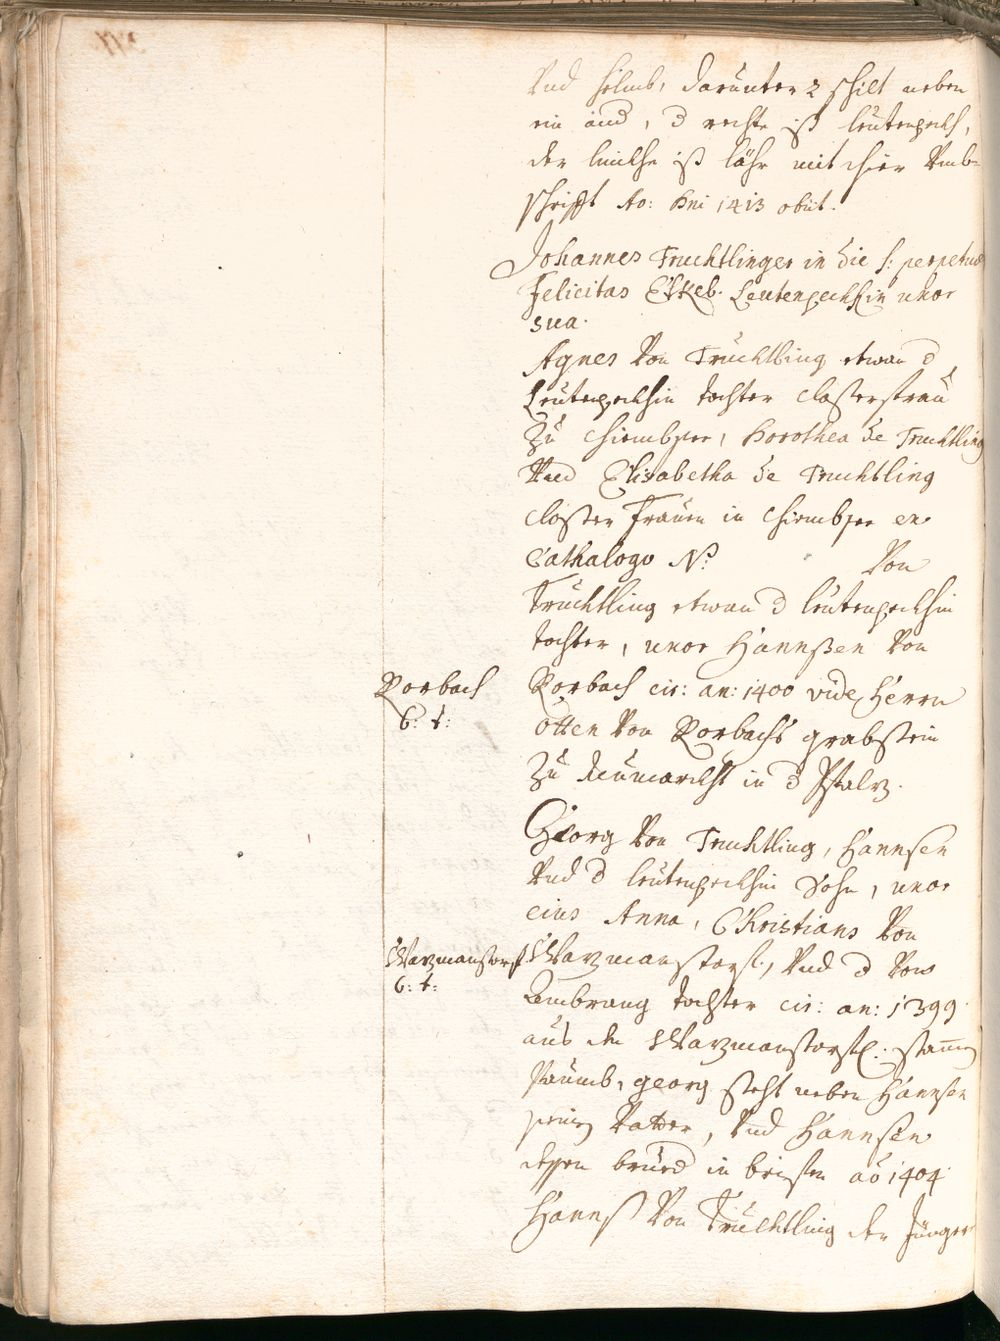 Und helmb, darunter 2 schilt neben
ein and, d rechte ist leutenpeckh,
der linckhe ist lähr mit ihrer Umb-
schrifft Ao: Dni 1413 obiit.
Johannes Truchtlinger in die s: perpetuæ
Felicitas Leutenpeckhin uxor
sua.
Agnes Von Truchtling etwan d
Leutenpeckhin tochter closterfrau
Zu Chiembsee, Dorothea de Truchtling
Und Elisabetha de Truchtling
closter Frauen in Chiembsee ex
Cathalogo N: Von
Truchtling etwan d leutenpeckhin
tochter, uxor Hannßen Von
Rorbach
6: t:
Rorbach cir: an: 1400 vide Herrn
Otten Von Rorbachs grabstein
Zu Neumarckht in d Pfalz.
Georg Von Truchtling, Hannsen
Und d leutenpeckhin Sohn, uxor
eius Anna, Christians Von
Warzmanstorf
6: t:
Warzmanstorf, Und d Von
Ambrang tochter cir: an: 1399
aus dem Warzmanstorf: stamm
Paumb, georg steht neben Hannsen
seinen Vatter, Und Hannsen
dessen brued in briefen ao 1404
Hannß Von Truchtling der Jünger